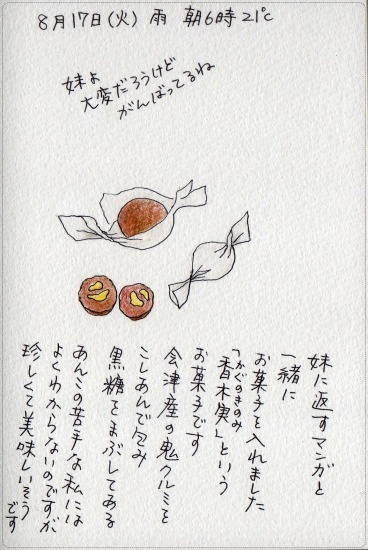 8月17日(火) 雨 朝6時21℃
妹よ
大変だろうけど
がんばってるね
妹に返すマンガと
一緒に
お菓子を入れました
「香木実」という
かぐのきのみ
お菓子です
会津産の鬼クルミを
こしあんで包み
黒糖をまぶしてある
あんこの苦手な私には
よくわからないのですが
珍しくて美味しいそう
です